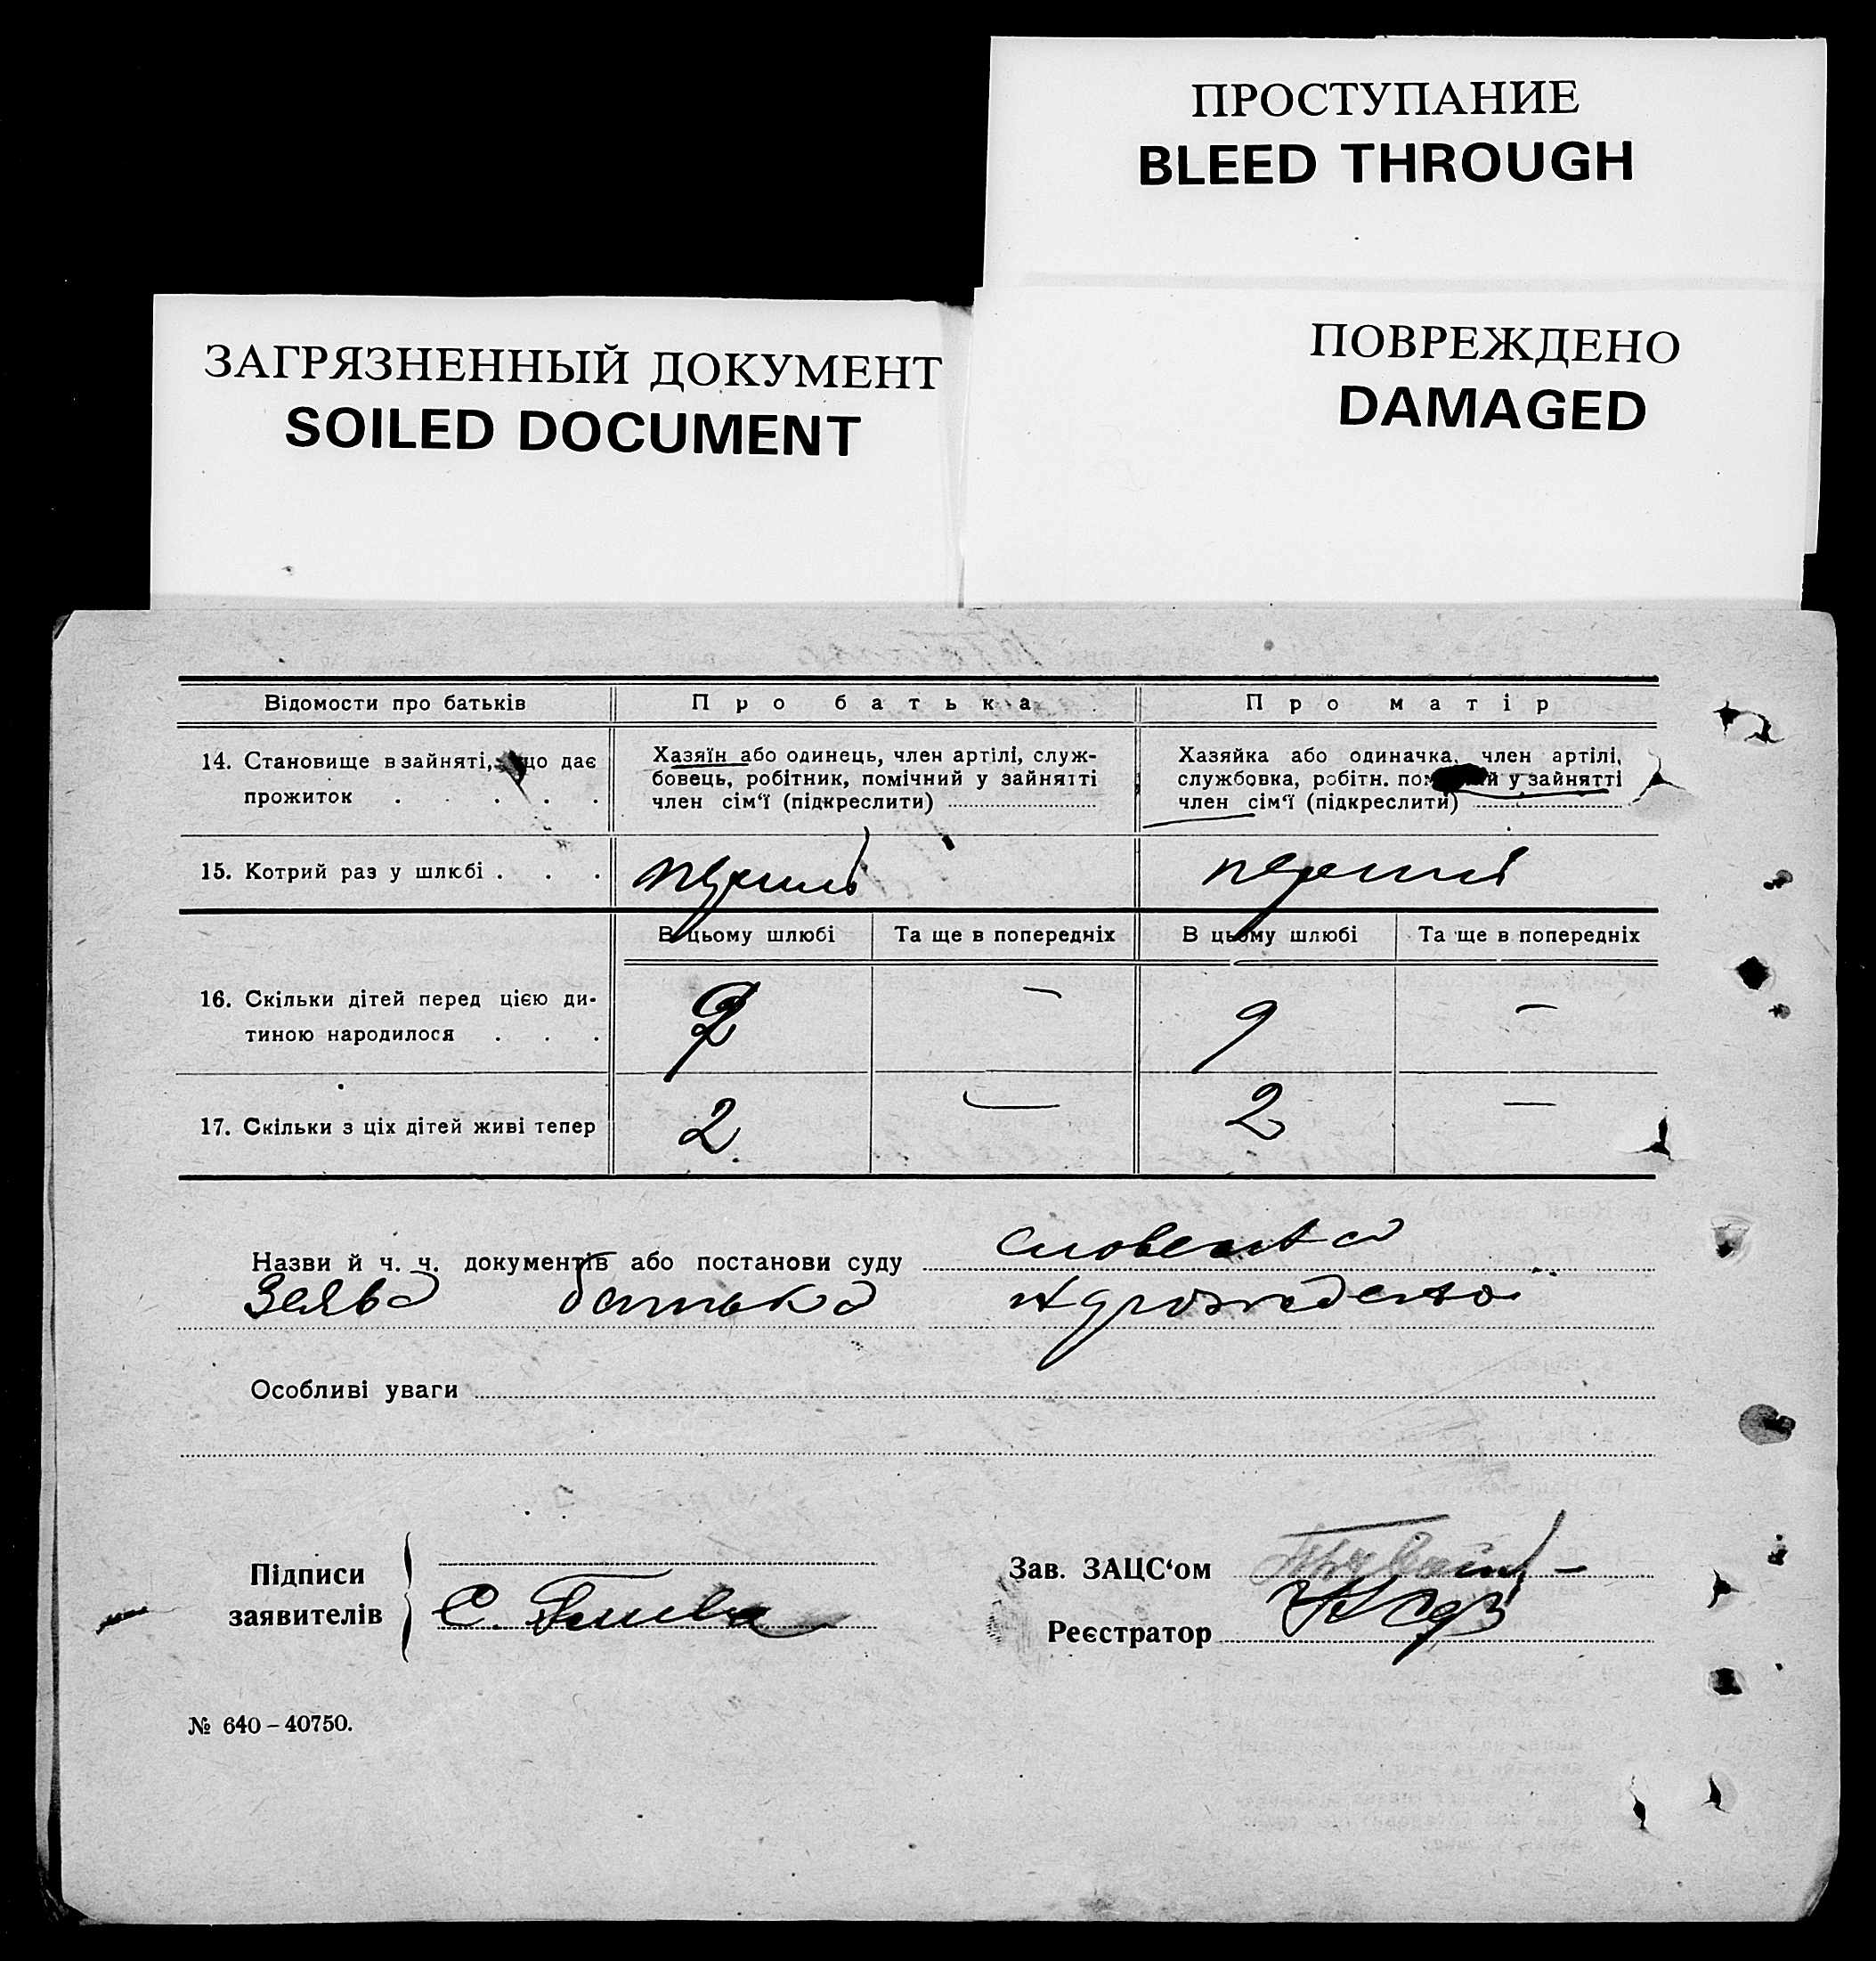 ПРОСТУПАНИЕ
BLEED THROUGH
ПОВРЕЖДЕНО
DAMAGED
ЗАГРЯЗНЕННЫЙ ДОКУМЕНТ
SOILED DOCUMENT
Відомости про батьків Про батька Про матір
14. Становище в зайняті, що дає прожиток . . . . .
Хазяїн або одинець, член артілі, служ-
бовець, робітник, помічний у зайнятті
член сім‘ї (підкреслити)
Хазяйка або одиначка, член артілі,
службовка, робітн. пом й у зайнятті
член сім‘ї (підкреслити)
15. Котрий раз у шлюбі . . . перший перший
В цьому шлюбі Та ще в попередніх В цьому шлюбі Та ще в попередніх
16. Скільки дітей перед цією ди-
тиною народилося . . . — 9 —
17. Скільки з ціх дітей живі тепер 2 — 2 —
Назви й ч. ч. документів або постанови суду словесна
Заява батька
Особливі уваги
Підписи
заявителів
С.
Зав. ЗАЦС‘ом
Реєстратор
№ 640 – 40750.